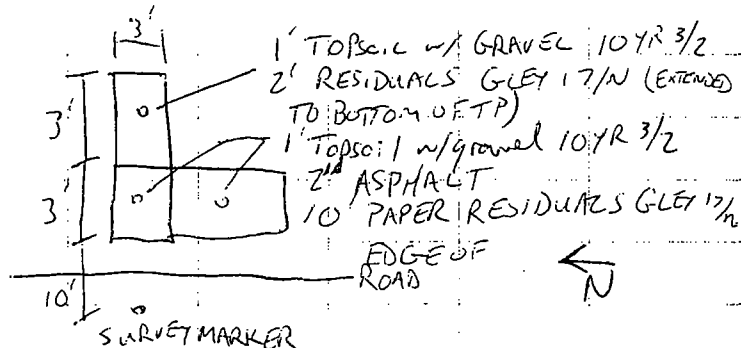 3'
1' TOPSOIL w/ GRAVEL 10YR 3/2
2' RESIDUALS GLEY 1 7/N (EXTENDED
TO BOTTOM OF TP)
3'
1' Topsoil w/gravel 10YR 3/2
2" ASPHALT
3'
10' PAPER RESIDUALS GLEY 1 7/N
EDGE OF
ROAD
N
10'
SURVEY MARKER